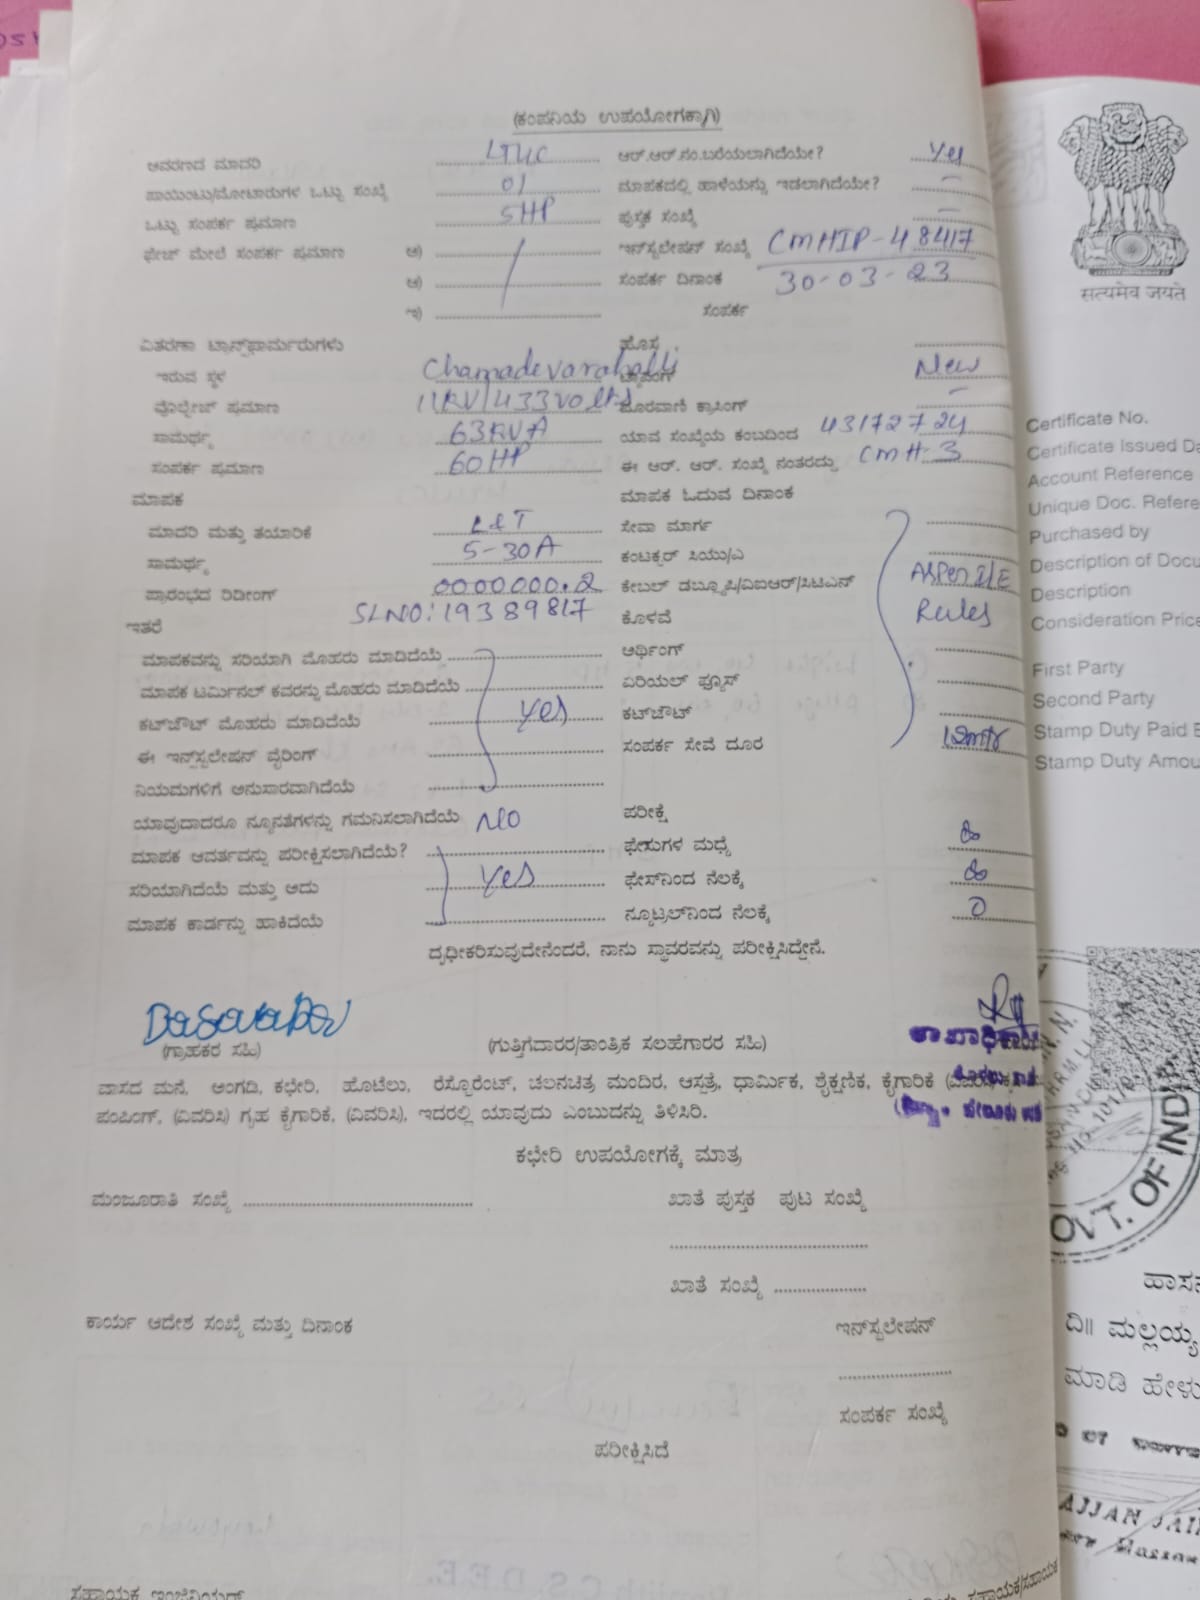 (ಕಂಪನಿಯ ಉಪಯೋಗಕ್ಕಾಗಿ)
ಆವರಣದ ಮಾದರಿ
ಆರ್.ಆರ್.ನಂ.ಬರೆಯಲಾಗಿದೆಯೇ? Yes
ಪಾಯಿಂಟು/ಮೋಟಾರುಗಳ ಒಟ್ಟು ಸಂಖ್ಯೆ 01
ಮಾಪಕದಲ್ಲಿ ಹಾಳೆಯನ್ನು ಇಡಲಾಗಿದೆಯೇ? –
ಒಟ್ಟು ಸಂಪರ್ಕ ಪ್ರಮಾಣ 5HP
ಪುಸ್ತಕ ಸಂಖ್ಯೆ –
ಫೇಜ್ ಮೇಲೆ ಸಂಪರ್ಕ ಪ್ರಮಾಣ ಅ)
ಇನ್‌ಸ್ಟಲೇಷನ್ ಸಂಖ್ಯೆ CMHIP-48417
ಆ)
ಸಂಪರ್ಕ ದಿನಾಂಕ 30-03-23
ಇ)
ಸಂಪರ್ಕ
ವಿತರಣಾ ಟ್ರಾನ್ಸ್‌ಫಾರ್ಮರುಗಳು
ಹೊಸ
ಇರುವ ಸ್ಥಳ Chamadevarahalli
ಟ್ಯಾಪಿಂಗ್ New
ವೊಲ್ಟೇಜ್ ಪ್ರಮಾಣ 11KV/433volts
ದೂರವಾಣಿ ಕ್ರಾಸಿಂಗ್ –
ಸಾಮರ್ಥ್ಯ 63KVA
ಯಾವ ಸಂಖ್ಯೆಯ ಕಂಬದಿಂದ 43172724
ಸಂಪರ್ಕ ಪ್ರಮಾಣ 60HP
ಈ ಆರ್. ಆರ್. ಸಂಖ್ಯೆ ನಂತರದ್ದು CMH-3
ಮಾಪಕ
ಮಾಪಕ ಓದುವ ದಿನಾಂಕ
ಮಾದರಿ ಮತ್ತು ತಯಾರಿಕೆ L&T
ಸೇವಾ ಮಾರ್ಗ
ಸಾಮರ್ಥ್ಯ 5-30A
ಕಂಟಕ್ಟರ್ ಸಿಯು/ಎ
ಪ್ರಾರಂಭದ ರಿಡೀಂಗ್ 0000000.2
ಕೇಬಲ್ ಡಬ್ಲ್ಯೂಪಿ/ವಿಐಆರ್/ಸಿಟಿಎನ್ As per I/E
ಇತರೆ SLNO: 19389817
ಕೊಳವೆ Rules
ಮಾಪಕವನ್ನು ಸರಿಯಾಗಿ ಮೊಹರು ಮಾಡಿದೆಯೆ
ಆರ್ಥಿಂಗ್
ಮಾಪಕ ಟರ್ಮಿನಲ್ ಕವರನ್ನು ಮೊಹರು ಮಾಡಿದೆಯೆ
ಏರಿಯಲ್ ಫ್ಯೂಸ್
ಕಟ್‌ಔಟ್ ಮೊಹರು ಮಾಡಿದೆಯೆ Yes
ಕಟ್‌ಔಟ್
ಈ ಇನ್‌ಸ್ಟಲೇಷನ್ ವೈರಿಂಗ್
ಸಂಪರ್ಕ ಸೇವೆ ದೂರ
ನಿಯಮಗಳಿಗೆ ಅನುಸಾರವಾಗಿದೆಯೆ
ಯಾವುದಾದರೂ ನ್ಯೂನತೆಗಳನ್ನು ಗಮನಿಸಲಾಗಿದೆಯೆ NO
ಪರೀಕ್ಷೆ
ಮಾಪಕ ಆವರ್ತವನ್ನು ಪರೀಕ್ಷಿಸಲಾಗಿದೆಯೆ?
ಫೇಸುಗಳ ಮಧ್ಯೆ ∞
ಸರಿಯಾಗಿದೆಯೆ ಮತ್ತು ಅದು Yes
ಫೇಸ್‌ನಿಂದ ನೆಲಕ್ಕೆ ∞
ಮಾಪಕ ಕಾರ್ಡನ್ನು ಹಾಕಿದೆಯೆ
ನ್ಯೂಟ್ರಲ್‌ನಿಂದ ನೆಲಕ್ಕೆ 0
ದೃಢೀಕರಿಸುವುದೇನೆಂದರೆ, ನಾನು ಸ್ಥಾವರವನ್ನು ಪರೀಕ್ಷಿಸಿದ್ದೇನೆ.
(ಗ್ರಾಹಕರ ಸಹಿ)
(ಗುತ್ತಿಗೆದಾರರ/ತಾಂತ್ರಿಕ ಸಲಹೆಗಾರರ ಸಹಿ)
ವಾಸದ ಮನೆ, ಅಂಗಡಿ, ಕಛೇರಿ, ಹೊಟೆಲು, ರೆಸ್ಟೋರೆಂಟ್, ಚಲನಚಿತ್ರ ಮಂದಿರ, ಆಸ್ಪತ್ರೆ, ಧಾರ್ಮಿಕ, ಶೈಕ್ಷಣಿಕ, ಕೈಗಾರಿಕೆ
ಪಂಪಿಂಗ್, (ವಿವರಿಸಿ) ಗೃಹ ಕೈಗಾರಿಕೆ, (ವಿವರಿಸಿ), ಇದರಲ್ಲಿ ಯಾವುದು ಎಂಬುದನ್ನು ತಿಳಿಸಿರಿ.
ಕಛೇರಿ ಉಪಯೋಗಕ್ಕೆ ಮಾತ್ರ
ಮಂಜೂರಾತಿ ಸಂಖ್ಯೆ
ಖಾತೆ ಪುಸ್ತಕ ಪುಟ ಸಂಖ್ಯೆ
ಖಾತೆ ಸಂಖ್ಯೆ
ಕಾರ್ಯ ಆದೇಶ ಸಂಖ್ಯೆ ಮತ್ತು ದಿನಾಂಕ
ಇನ್‌ಸ್ಟಲೇಷನ್
ಸಂಪರ್ಕ ಸಂಖ್ಯೆ
ಪರೀಕ್ಷಿಸಿದೆ
ಸಹಾಯಕ ಇಂಜಿನಿಯರ್
सत्यमेव जयते
Certificate No.
Certificate Issued Da
Account Reference
Unique Doc. Refere
Purchased by
Description of Docu
Description
Consideration Price
First Party
Second Party
Stamp Duty Paid B
Stamp Duty Amou
OVT. OF INDI
ಹಾಸನ
ದಿ॥ ಮಲ್ಲಯ್ಯ
ಮಾಡಿ ಹೇಳು
AJJAN JAI
Hassan